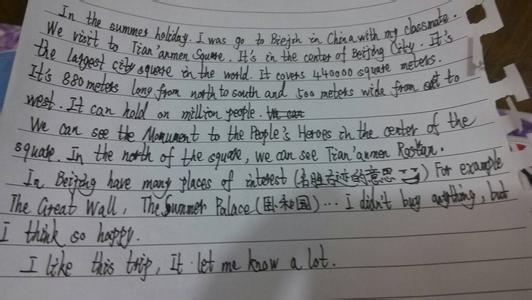 In the summer holiday. I was go to Biejih in China with my classmate.
We visit to Tian'anmen Square. It's in the center of Beijing City. It's
the largest city square in the world. It covers 440000 square meters.
It's 880 meters long from north to south and 500 meters wide from east to
west. It can hold on million people.
We can see the Monument to the People's Heroes in the center of the
square. In the north of the square, we can see Tian'anmen Rostrum.
In Beijing have many places of interest (名胜古迹的意思) For example
The Great Wall, The summer Palace (卧和园)... I didn't buy anything, but
I think so happy.
I like this trip, It let me know a lot.